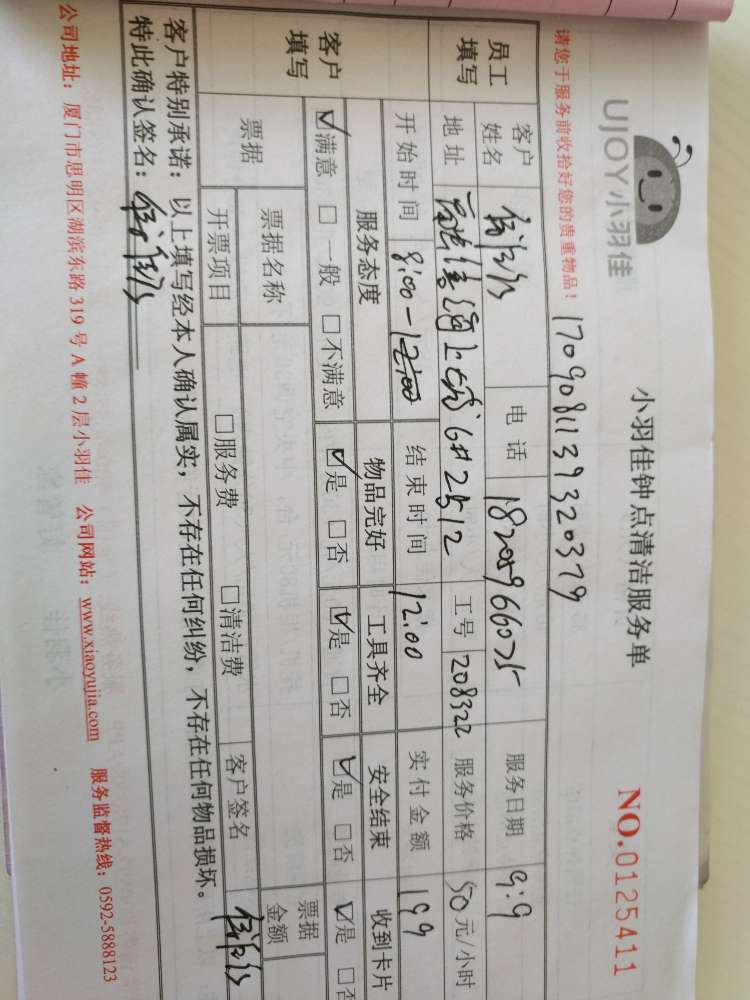 UJOY小羽佳
小羽佳钟点清洁服务单
NO.0125411
请您于服务前收拾好您的贵重物品！
1709081139320379
员工填写
客户姓名
电话 18205966075
服务日期 9.9
地址
上城 6# 2512
工号 208322
服务价格 50元/小时
开始时间 8:00-12:00
结束时间 12:00
实付金额 199
客户填写
服务态度 物品完好 工具齐全 安全结束 收到卡片
☑满意 □一般 □不满意 ☑是 □否 ☑是 □否 ☑是 □否 ☑是 □否
票据
票据名称
票据金额
开票项目 □服务费 □清洁费 客户签名
客户特别承诺：以上填写经本人确认属实，不存在任何纠纷，不存在任何物品损坏。
特此确认签名：
公司地址：厦门市思明区湖滨东路319号A幢2层小羽佳 公司网站：www.xiaoyujia.com 服务监督热线：0592-5888123